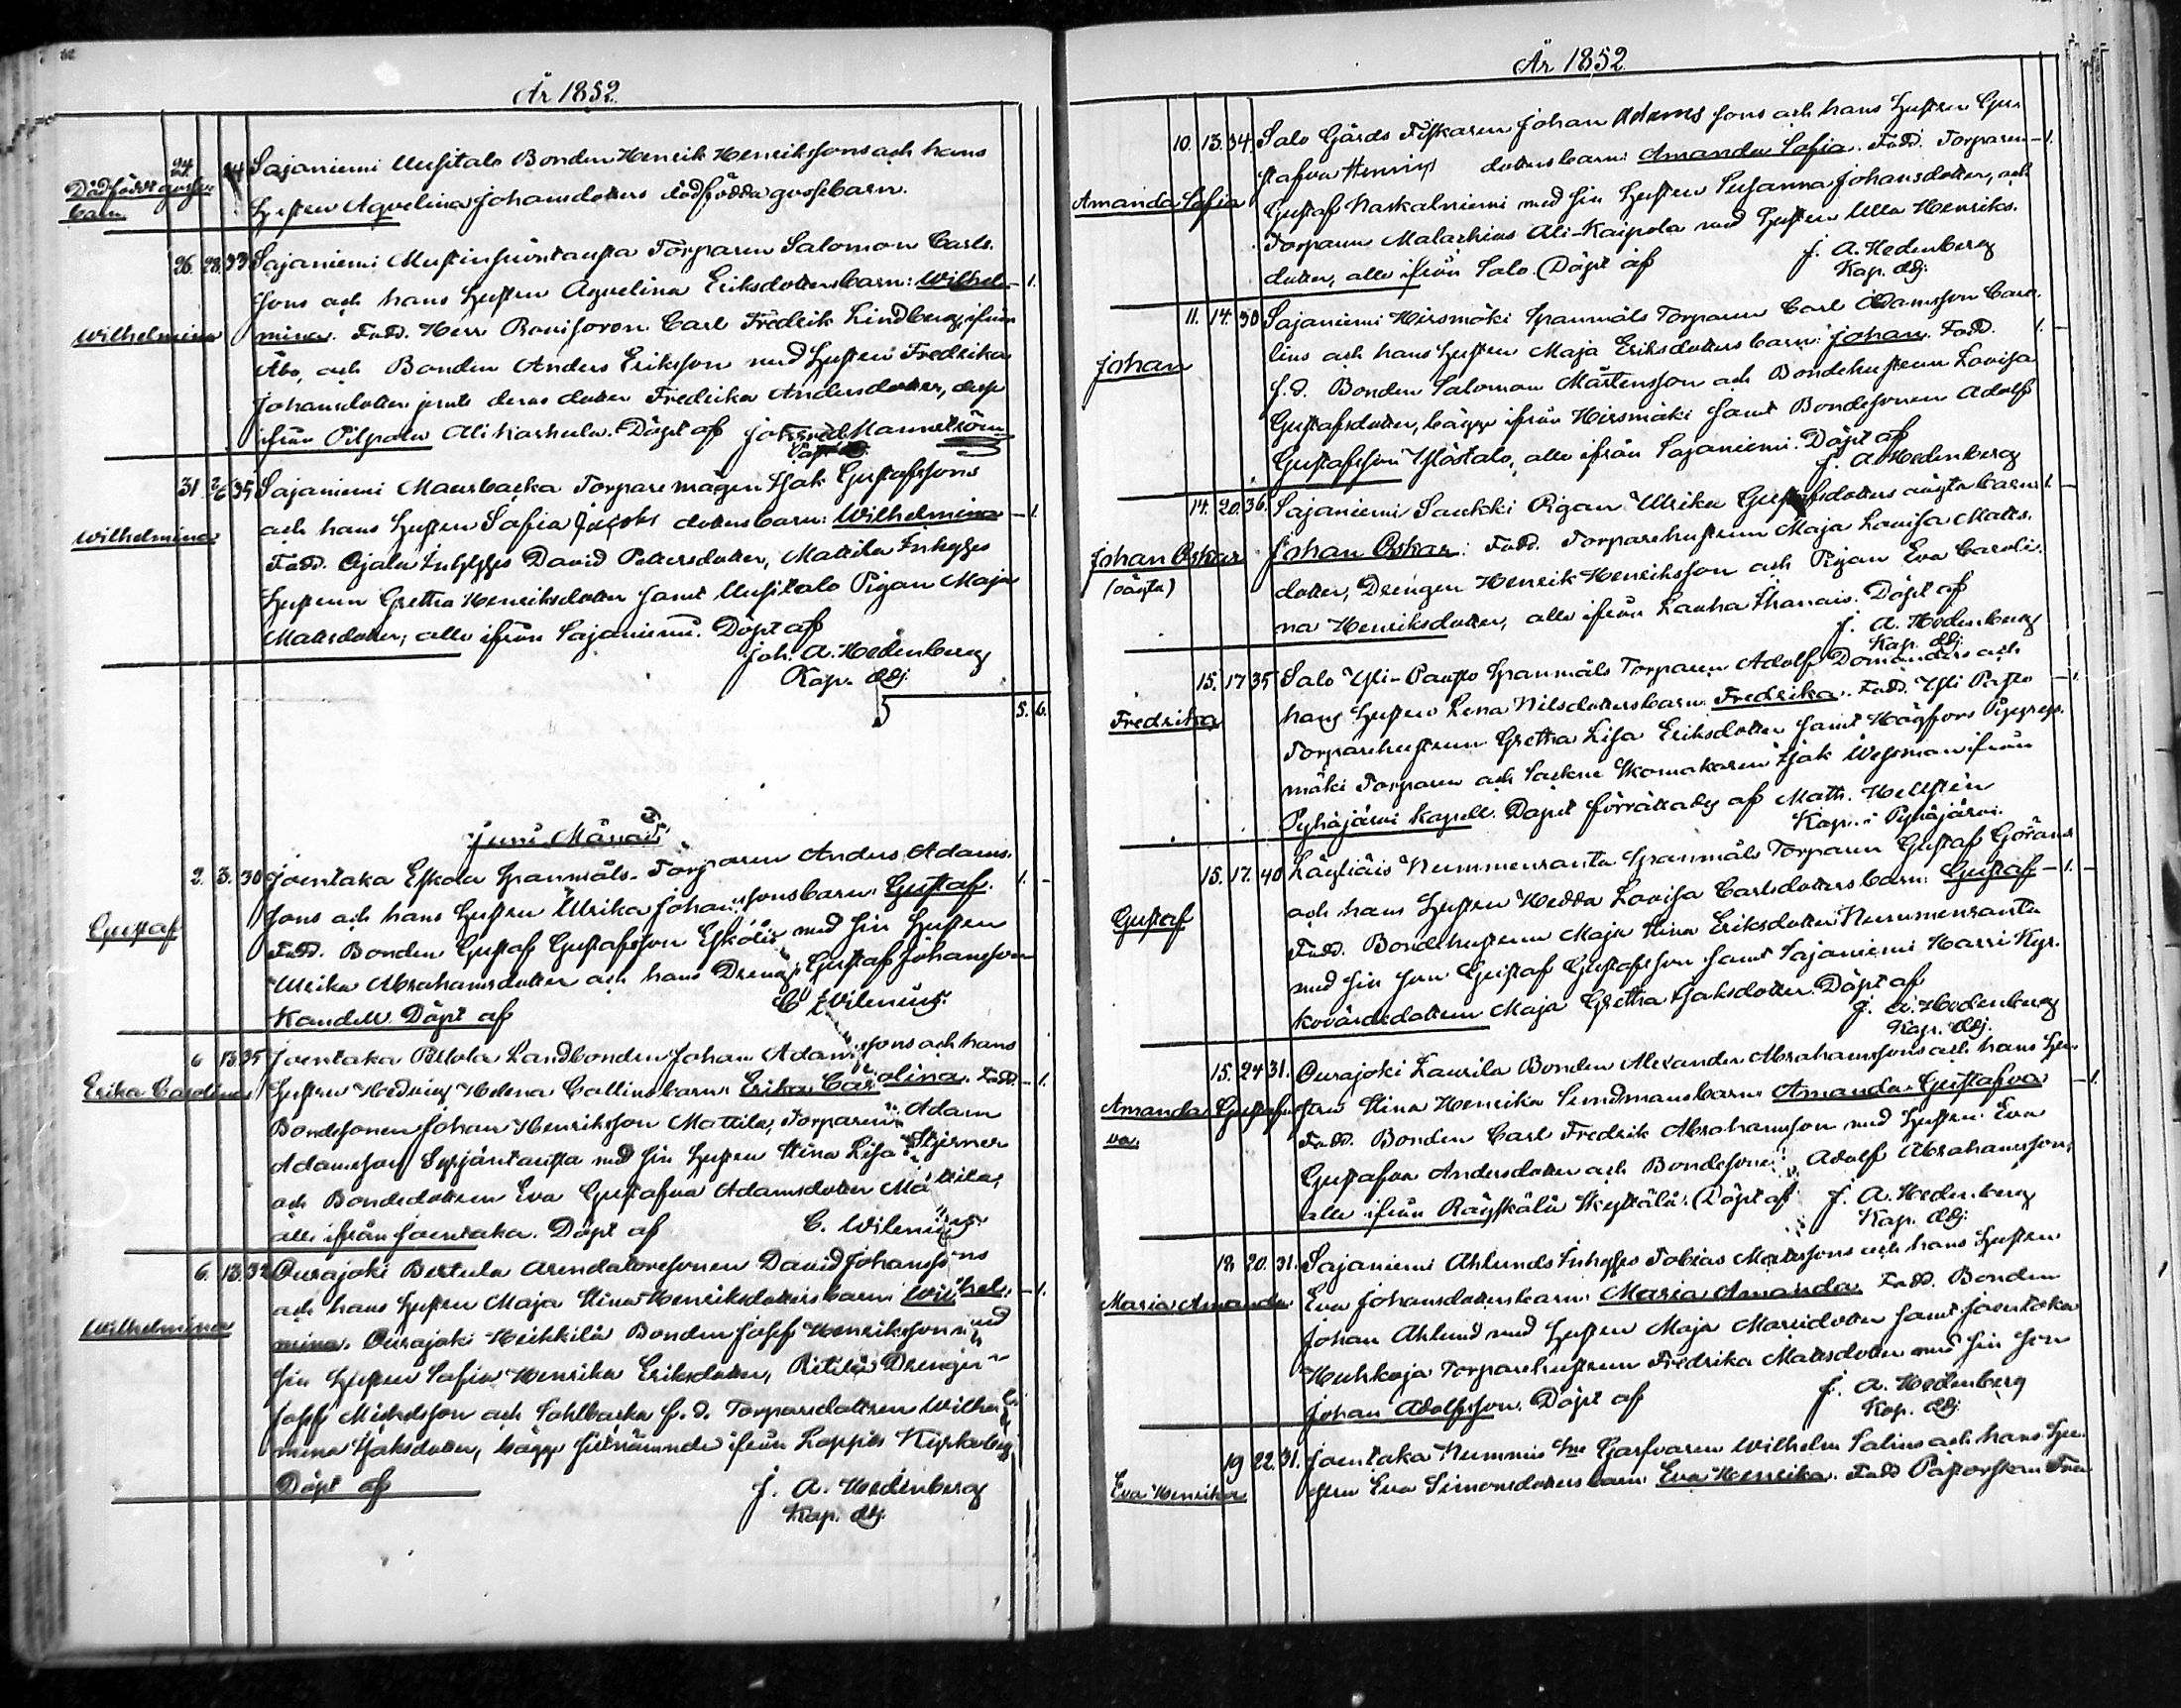 År 1852.
Dödfödt gosse
barn.
24. 24 Sajaniemi Uusitalo Bonden Henrik Henrikssons och hans
Hustru Aqvelina Johansdotters dödfödda gossebarn.
Wilhelmina
26. 28. 33 Sajaniemi Torparen Salomon Carls-
sons och hans Hustru Aqvelina Eriksdotters barn: Wilhel- 1.
mina. Fadd. Herr Carl Fredrik Lindberg, ifrån
Åbo, och Bonden Anders Eriksson med Hustru Fredrika
Johansdotter jemte deras dotter Fredrika Andersdotter, desse
ifrån Pilpala Döpt af
Wilhelmina
31 2/6 35 Sajaniemi Torparemågen Isak Gustafssons
och hans Hustru Sofia Jacobs dotters barn: Wilhelmina 1.
Fadd. Ojala Inhyses David Pettersdotter, Mattila Inhyses
Hustrun Gretha Henriksdotter samt Uusitalo Pigan Maja
Mattsdotter, alla ifrån Sajaniemi. Döpt af
Joh. A. Hedenberg
Kap. Adj.
5. 6.
Juni Månad
Gustaf
2. 3. 30 Joentaka Eskola Spanmåls-Torparen Anders Adams-
sons och hans Hustru Ulrika Johanssons barn: Gustaf. 1. -
Fadd. Bonden Gustaf Gustafsson Eskola med sin Hustru
Ulrika Abrahamsdotter och hans Dreng Gustaf Johansson
Kandell. Döpt af C. Wilenius.
Erika Carolina
6 13 35 Joentaka Landbonden Johan Adamssons och hans
Hustru Hedvig Helena Callius barn: Erika Carolina. Fadd. 1.
Bondesonen Johan Henriksson Mattila, Torparen Adam
Adamsson Syrjäntausta med sin Hustru Stina Lisa Stjerner
och Bondedottren Eva Gustafva Adamsdotter Mattila,
alle ifrån Joentaka. Döpt af C. Wilenius
Wilhelmina
6. 13. 32 Ourajoki Bertula Arendatorssonen David Johanssons
och hans Hustru Maja Stina Henriksdotters barn: Wilhel- 1.
mina. Ourajoki Heikkilä Bonden Josef Henriksson med
sin Hustru Sofia Henrika Eriksdotter, Drengen
Josef Michelsson och Sohlbacka f.d. Torparedottren Wilhel-
mina Isaksdotter, bägge ifrån Loppis Kyrkoby
Döpt af J. A. Hedenberg
Kap. Adj.
År 1852.
Amanda Sofia
10. 13. 34. Salo Gårds Fiskaren Johan Adams sons och hans Hustru Gu-
stafva Henriks dotters barn: Amanda Sofia. Fadd. Torparen 1.
Gustaf Naskalniemi med sin Hustru Susanna Johansdotter, och
Torparen Malachias Ali-Kaipola med Hustru Ulla Henriks-
dotter, alle ifrån Salo. Döpt af J. A. Hedenberg
Kap. Adj.
Johan
11. 14. 30 Sajaniemi Hirsmäki Spanmåls Torparen Carl Adamsson Care-
lius och hans Hustru Maja Eriksdotters barn: Johan. Fadd. 1. -
f.d. Bonden Salomon Mårtensson och Bondehustrun Lovisa
Gustafsdotter, bägge ifrån Hirsmäki samt Bondesonen Adolf
Gustafsson Ylöstalo, alle ifrån Sajaniemi. Döpt af
J. A. Hedenberg
Johan Oskar
(oägta)
14. 20. 36. Sajaniemi Saukki Pigan Ulrika Gustafsdotters oägta barn: 1. -
Johan Oskar. Fadd. Torparehustrun Maja Lovisa Matts-
dotter, Drengen Henrik Henriksson och Pigan Eva Caroli-
na Henriksdotter, alle ifrån Lauha Thanais. Döpt af
J. A. Hedenberg
Kap. Adj.
Fredrika
15. 17 35 Salo Yli-Paaso Spanmåls Torparen Adolf Domanders och
hans Hustru Lena Nilsdotters barn: Fredrika. Fadd. Yli Paaso 1.
Torparehustrun Gretha Lisa Eriksdotter samt Högfors
mäki Torparen och Sockne Skomakaren Isak Wessman ifrån
Pyhäjärvi Kapell. Dopet förrättades af Math. Hellstén
Kap. i Pyhäjärvi.
Gustaf
15. 17. 40 Läyliäis Nummenranta Spanmåls Torparen Gustaf Görans
och hans Hustru Hedda Lovisa Carlsdotters barn: Gustaf 1. -
Fadd. Bondehustrun Maja Stina Eriksdotter Nummenranta
med sin son Gustaf Gustafsson samt Sajaniemi Harri Kyr-
kovärdedottren Maja Gretha Isaksdotter. Döpt af
J. A. Hedenberg
Kap. Adj.
Amanda Gustaf-
va.
15. 24 31. Ourajoki Laurila Bonden Alexander Abrahamssons och hans Hu-
stru Stina Henrika Sundmans barn: Amanda Gustafva 1.
Fadd. Bonden Carl Fredrik Abrahamsson med Hustru Eva
Gustafva Andersdotter och Bondesonen Adolf Abrahamsson,
alle ifrån Räyskälä. Döpt af J. A. Hedenberg
Kap. Adj.
Maria Amanda
18. 20. 31. Sajaniemi Ahlunds Inhyses Tobias Mattssons och hans Hustru
Eva Johansdotters barn: Maria Amanda. Fadd. Bonden
Johan Ahlund med Hustru Maja samt Joentaka
Huhkoja Torparehustrun Fredrika Mattsdotter med sin son
Johan Adolfsson. Döpt af J. A. Hedenberg
Kap. Adj.
Eva Henrika
19 22. 31. Joentaka Nummis Garfvaren Wilhelm Salins och hans Hu-
stru Eva Simonsdotters barn: Eva Henrika. Fadd. Pastorskan